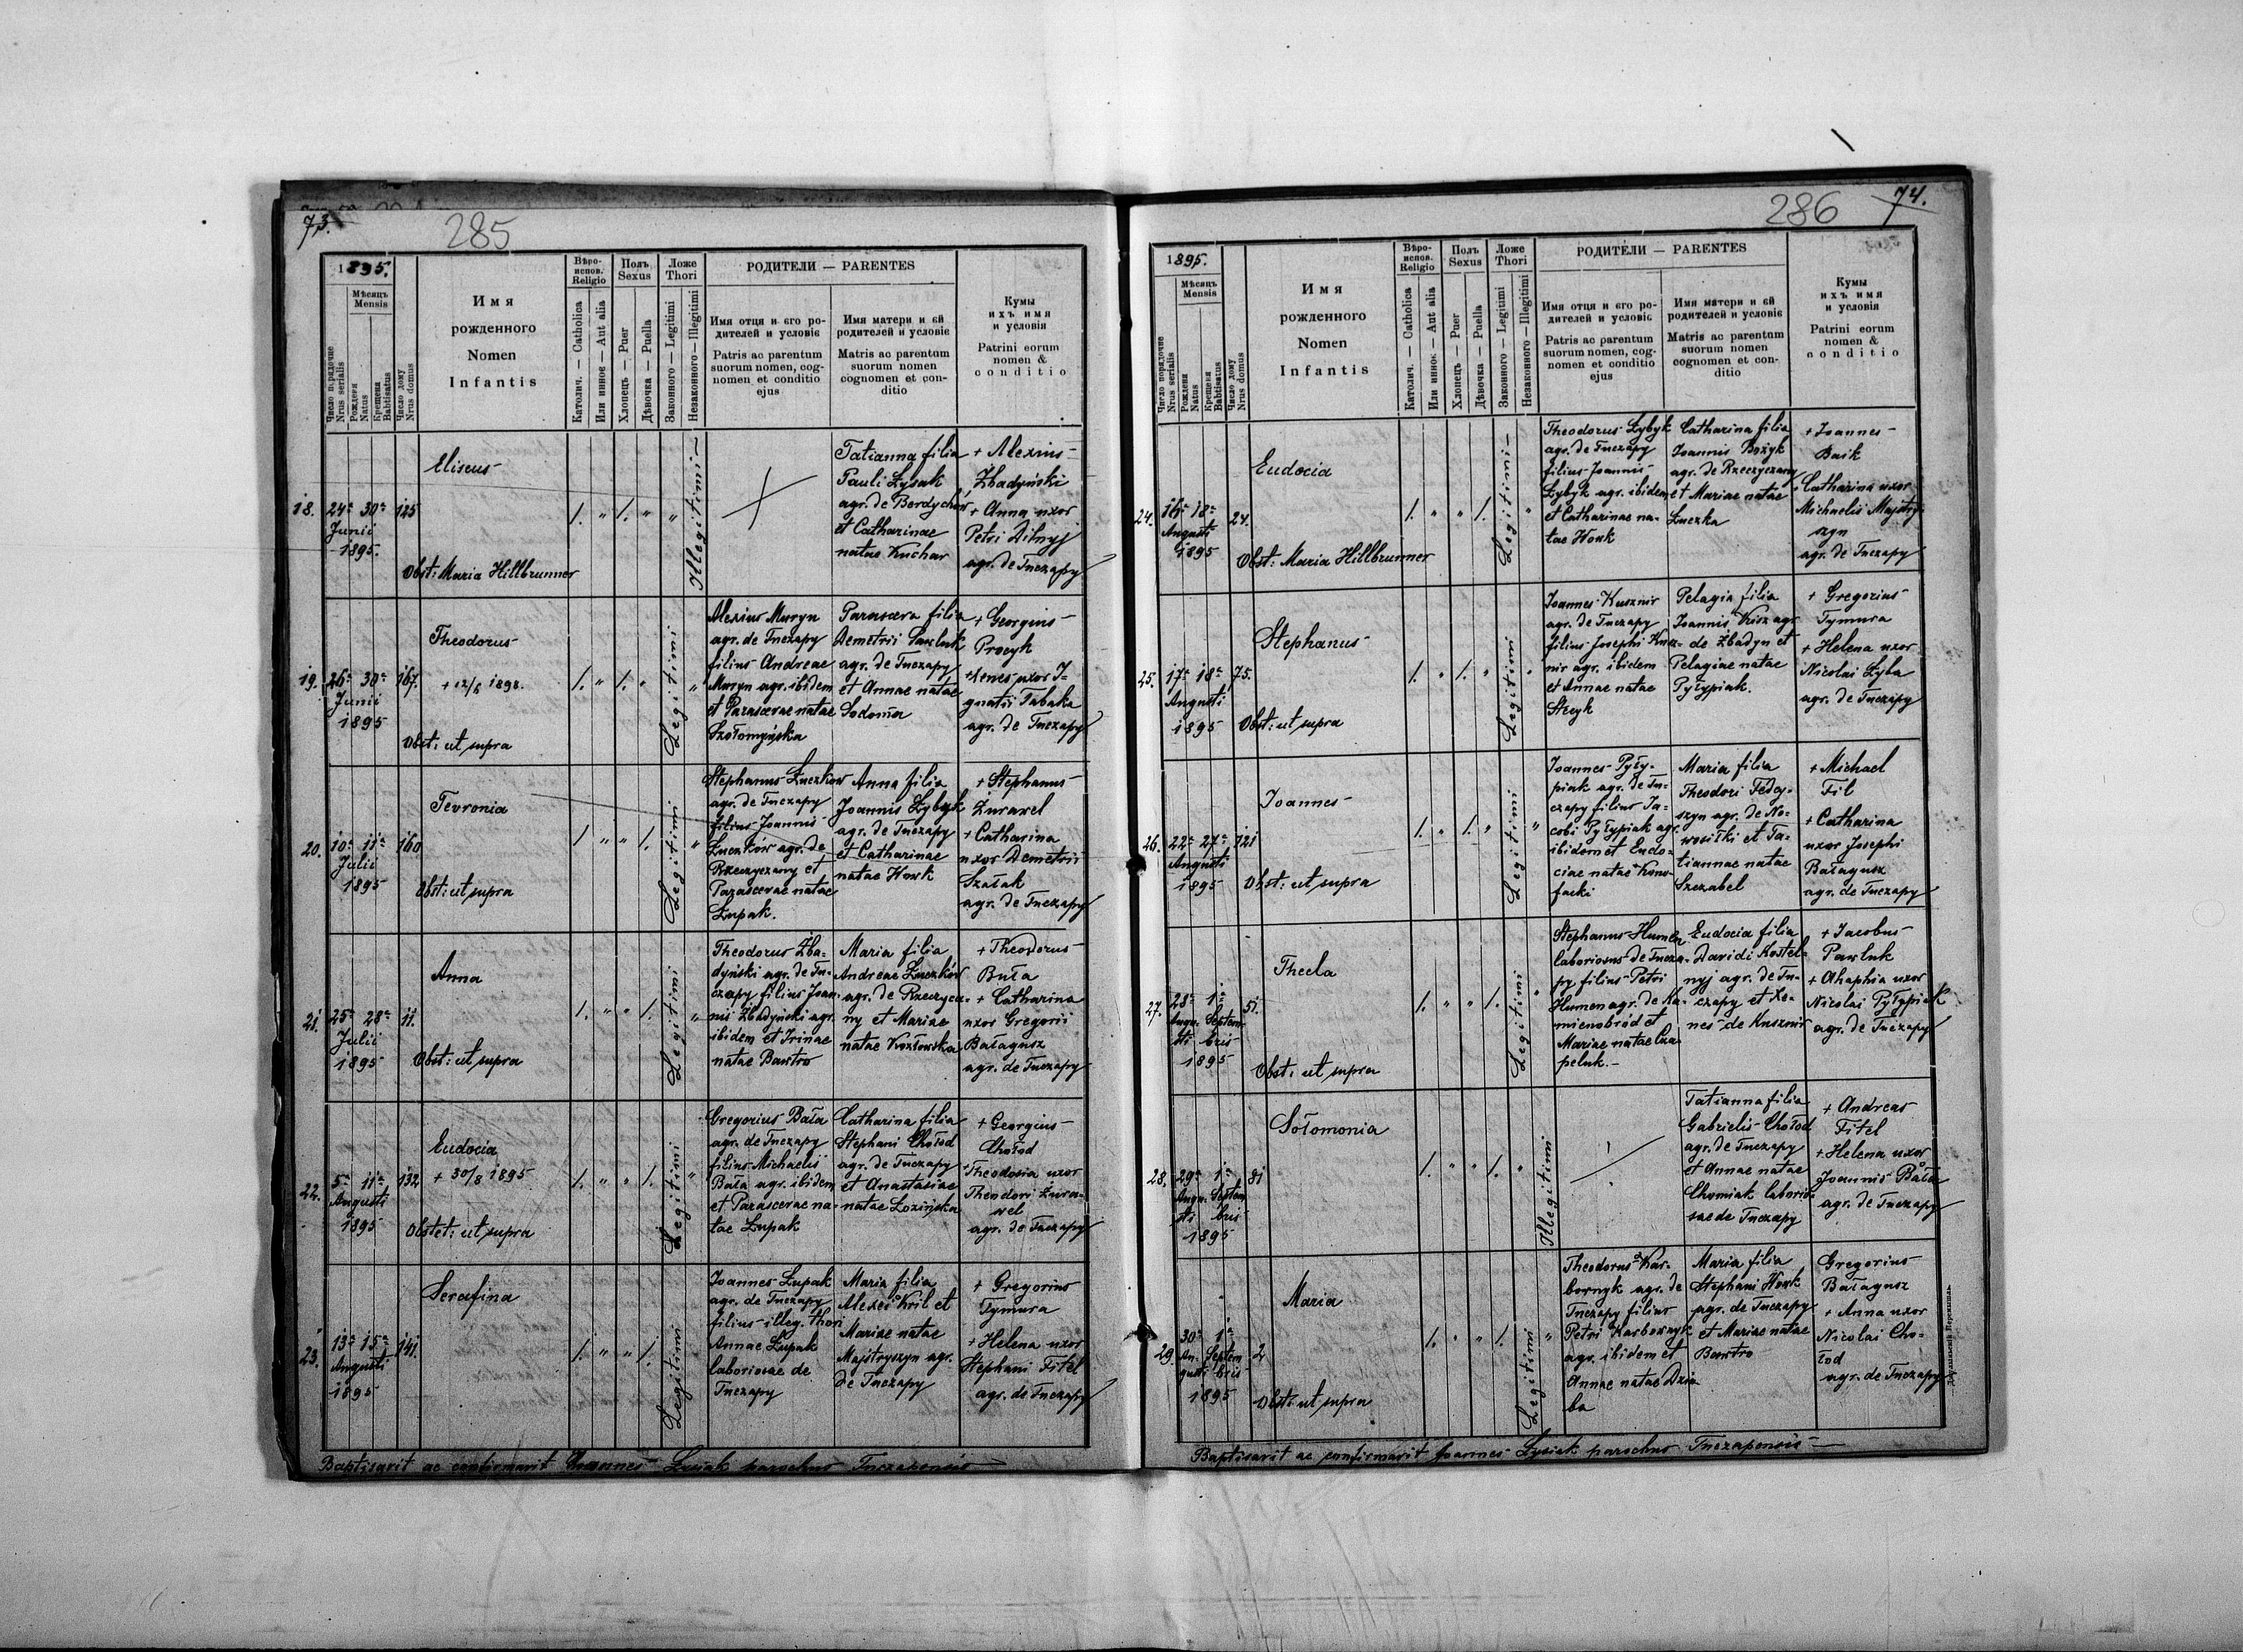 73.
285
1895.
Мѣсяцъ
Mensis
Число порядочне
Nrus serialis
Рожденя
Natus
Крещеня
Babtisatus
Число дому
Nrus domus
Имя
рожденного
Nomen
Infantis
Вѣро-
испов.
Religio
Католич. — Catholica
Или инноє — Aut alia
Полъ
Sexus
Хлопець — Puer
Дѣвочка — Puella
Ложе
Thori
Законного — Legitimi
Незаконного — Illegitimi
РОДИТЕЛИ — PARENTES
Имя отця и єго ро-
дителей и условіє
Patris ac parentum
suorum nomen, cog-
nomen et conditio
ejus
Имя матери и єй
родителей и условіє
Matris ac parentum
suorum nomen
cognomen et con-
ditio
Кумы
ихъ имя
и условія
Patrini eorum
nomen &
conditio
18.
24a 30a
Junii
1895.
125
Eliseus
Obst: Maria Hillbrunner
Illegitimi
Tatianna filia
Pauli Łysak
agr. de Bordychów
et Catharinae
natae Kuchar
+ Alexius
Zbadyński
+ Anna uxor
Petri Dilnyj
agr. de Tuczapy
19.
26a 30a
Junii
1895
167.
Theodorus
+ 12/8 1898.
Obst: ut supra
Legitimi
Alexius Muryn
agr. de Tuczapy
filius Andreae
Muryn agr. ibidem
et Parascevae natae
Szołomyńska
Parasceva filia
Demetrii Pawluk
agr. de Tuczapy
et Annae natae
Sodoma
+ Georgius
Procyk
+ Xenes uxor I-
gnatii Tabaka
agr. de Tuczapy
20.
10a 11a
Julii
1895
160
Fevronia
Obst: ut supra
Legitimi
Stephanus Łuczkow
agr. de Tuczapy
filius Joannis
Łuczkow agr. de
Rzeczyczany et
Parascevae natae
Łupak.
Anna filia
Joannis Łybyk
agr. de Tuczapy
et Catharinae
natae Howk
+ Stephanus
Żurawel
+ Catharina
uxor Demetrii
Szałak
agr. de Tuczapy
21.
25a 28a
Julii
1895
11.
Anna
Obst: ut supra
Legitimi
Theodorus Zba-
dyński agr. de Tu-
czapy filius Joan-
nis Zbadyński agr.
ibidem et Irinae
natae Bawtro
Maria filia
Andreae Łuczków
agr. de Rzeczyca-
ny et Mariae
natae Kozłowska
+ Theodorus
Buła
+ Catharina
uxor Gregorii
Bałagusz
agr. de Tuczapy
22.
5a 11a
Augusti
1895
132.
Eudocia
+ 30/8 1895
Obstet: ut supra
Legitimi
Gregorius Bała
agr. de Tuczapy
filius Michaelis
Bała agr. ibidem
et Parascevae na-
tae Łupak
Catharina filia
Stephani Chołod
agr. de Tuczapy
et Anastasiae
natae Łozińska
+ Georgius
Chołod
+ Theodosia uxor
Theodori Żura-
wel
agr. de Tuczapy
23.
13a 15a
Augusti
1895
141.
Serafina
Legitimi
Joannes Łupak
agr. de Tuczapy
filius illeg. thori
Annae Łupak
laboriosae de
Tuczapy
Maria filia
Alexei Kril et
Mariae natae
Majstryszyn agr.
de Tuczapy
+ Gregorius
Tymura
+ Helena uxor
Stephani Fitel
agr. de Tuczapy
Baptisavit ac confirmavit Joannes Łysiak parochus Tuczapensis
74.
286
1895.
Мѣсяцъ
Mensis
Число порядочне
Nrus serialis
Рожденя
Natus
Крещеня
Babtisatus
Число дому
Nrus domus
Имя
рожденного
Nomen
Infantis
Вѣро-
испов.
Religio
Католич. — Catholica
Или инноє — Aut alia
Полъ
Sexus
Хлопець — Puer
Дѣвочка — Puella
Ложе
Thori
Законного — Legitimi
Незаконного — Illegitimi
РОДИТЕЛИ — PARENTES
Имя отця и єго ро-
дителей и условіє
Patris ac parentum
suorum nomen, cog-
nomen et conditio
ejus
Имя матери и єй
родителей и условіє
Matris ac parentum
suorum nomen
cognomen et con-
ditio
Кумы
ихъ имя
и условія
Patrini eorum
nomen &
conditio
24.
16a 18a
Augusti
1895
24.
Eudocia
Obst: Maria Hillbrunner
Legitimi
Theodorus Łybyk
agr. de Tuczapy
filius Joannis
Łybyk agr. ibidem
et Catharinae na-
tae Howk
Catharina filia
Joannis Bożyk
agr. de Rzeczyczany
et Mariae natae
Łuczka
+ Joannes
Baik
+ Catharina uxor
Michaelis Majstry-
szyn
agr. de Tuczapy
25.
17a 18a
Augusti
1895
75.
Stephanus
Obst: ut supra
Legitimi
Joannes Kusznir
agr. de Tuczapy
filius Josephi Kusz-
nir agr. ibidem
et Annae natae
Stecyk
Pelagia filia
Joannis Kisz agr.
de Zbadyn et
Pelagiae natae
Pyłypiak.
+ Gregorius
Tymura
+ Helena uxor
Nicolai Zyla
agr. de Tuczapy
26.
22a 27a
Augusti
1895
121
Joannes
Obst: ut supra
Legitimi
Joannes Pyły-
piak agr. de Tu-
czapy filius Ja-
cobi Pyłypiak agr.
ibidem et Eudo-
ciae natae Kono-
facki
Maria filia
Theodori Fedey-
szyn agr. de No-
wosiłki et Ta-
tiannae natae
Szczabel
+ Michael
Fil
+ Catharina
uxor Josephi
Bałagusz
agr. de Tuczapy
27.
28a 1a
Augu- Septem-
sti bris
1895
51.
Thecla
Obst: ut supra
Legitimi
Stephanus Humen
laboriosus de Tucza-
py filius Petri
Humen agr. de Ka-
mienobród et
Mariae natae Cza-
peluk.
Eudocia filia
Davidi Kostel-
nyj agr. de Tu-
czapy et Xe-
nes de Kusznir
+ Jacobus
Pawluk
+ Ahaphia uxor
Nicolai Pyłypiak
agr. de Tuczapy
28.
29a 1a
Augu- Septem-
sti bris
1895
81
Sołomonia
Illegitimi
Tatianna filia
Gabrielis Chołod
agr. de Tuczapy
et Annae natae
Chomiak laborio-
sae de Tuczapy
+ Andreas
Fitel
+ Helena uxor
Joannis Bała
agr. de Tuczapy
29.
30a 1a
Au- Septem-
gusti bris
1895
2
Maria
Obst: ut supra
Legitimi
Theodorus Kar-
bownyk agr. de
Tuczapy filius
Petri Karbownyk
agr. ibidem et
Annae natae Dzia-
ba
Maria filia
Stephani Howk
agr. de Tuczapy
et Mariae natae
Bawtro
Gregorius
Bałagusz
+ Anna uxor
Nicolai Cho-
łod
agr. de Tuczapy
Baptisavit ac confirmavit Joannes Łysiak parochus Tuczapensis